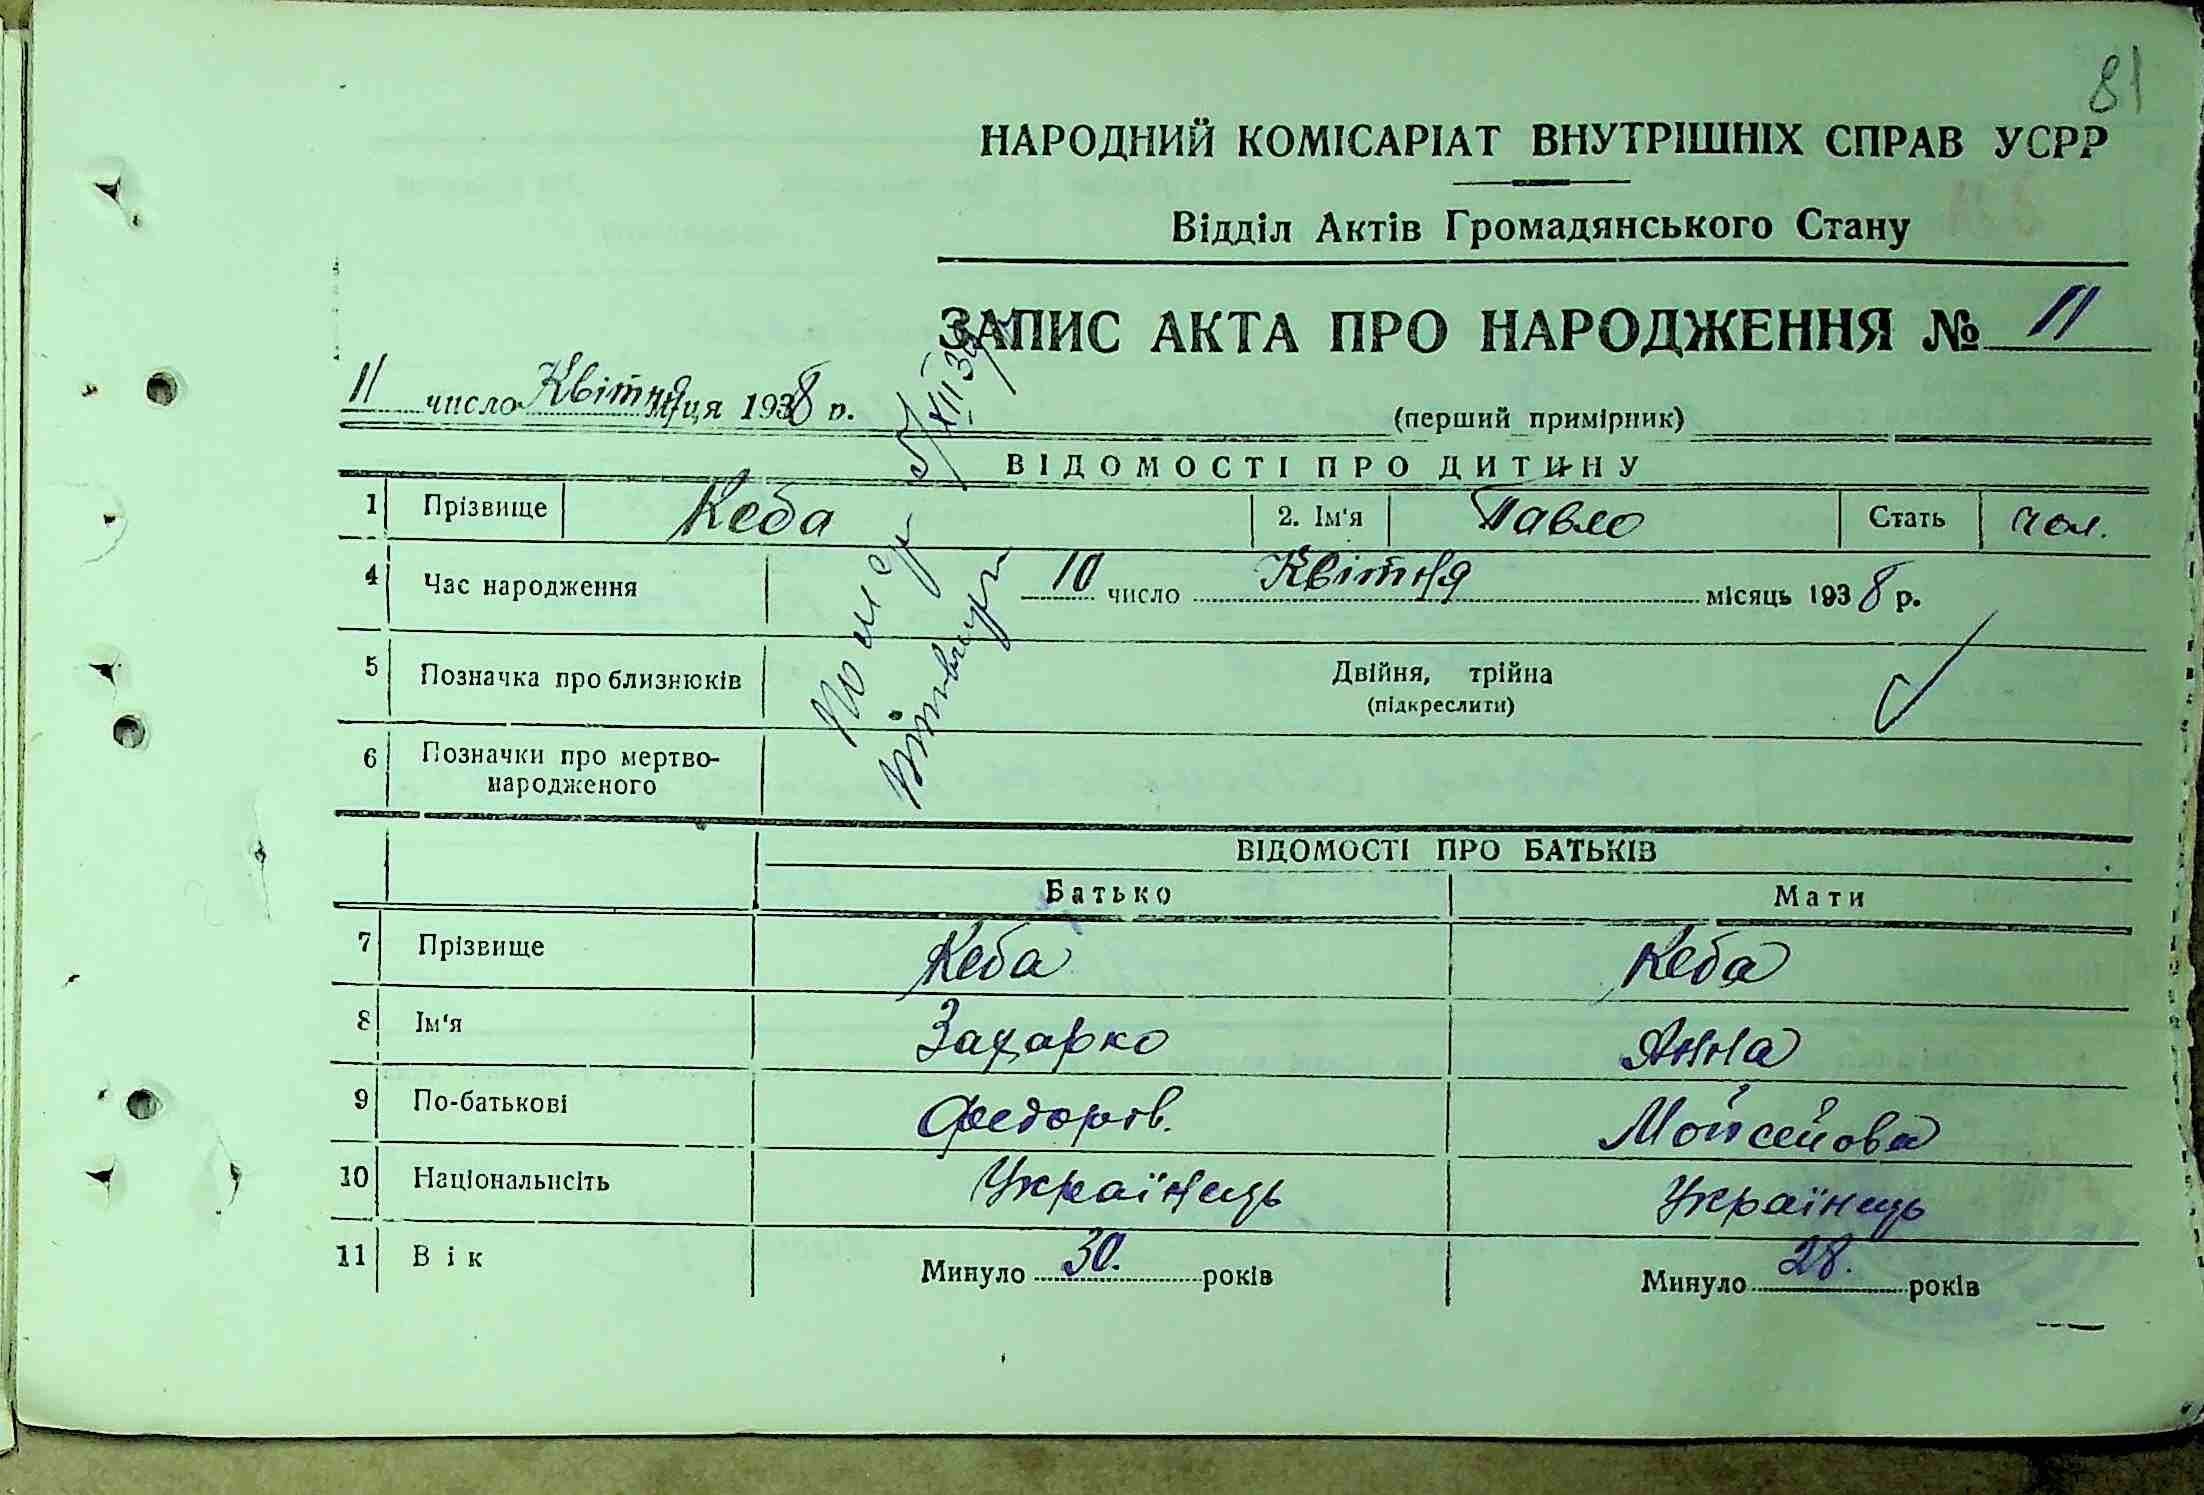 81
НАРОДНИЙ КОМІСАРІАТ ВНУТРІШНІХ СПРАВ УСРР
Відділ Актів Громадянського Стану
ЗАПИС АКТА ПРО НАРОДЖЕННЯ № 11
11 число Квітня м-ця 1938 р.
(перший примірник)
ВІДОМОСТІ ПРО ДИТИНУ
1 Прізвище Кеба 2. Ім'я Павло Стать чол.
4 Час народження 10 число Квітня місяць 1938 р.
5 Позначка про близнюків Двійня, трійна
(підкреслити)
6 Позначки про мертво-
народженого
ВІДОМОСТІ ПРО БАТЬКІВ
Батько Мати
7 Прізвище Кеба Кеба
8 Ім'я Захарко Анна
9 По-батькові Федоров. Мойсейова
10 Національність Українець Українець
11 Вік Минуло 30. років Минуло 28. років